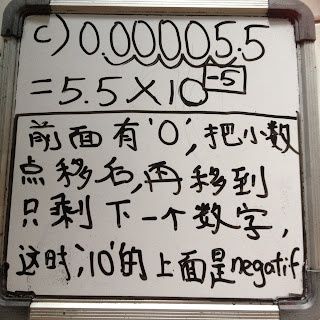 c) 0.00005.5
=5.5×10⁻⁵
前面有'0',把小数
点移右,再移到
只剩下一个数字,
这时,'10'的上面是negatif